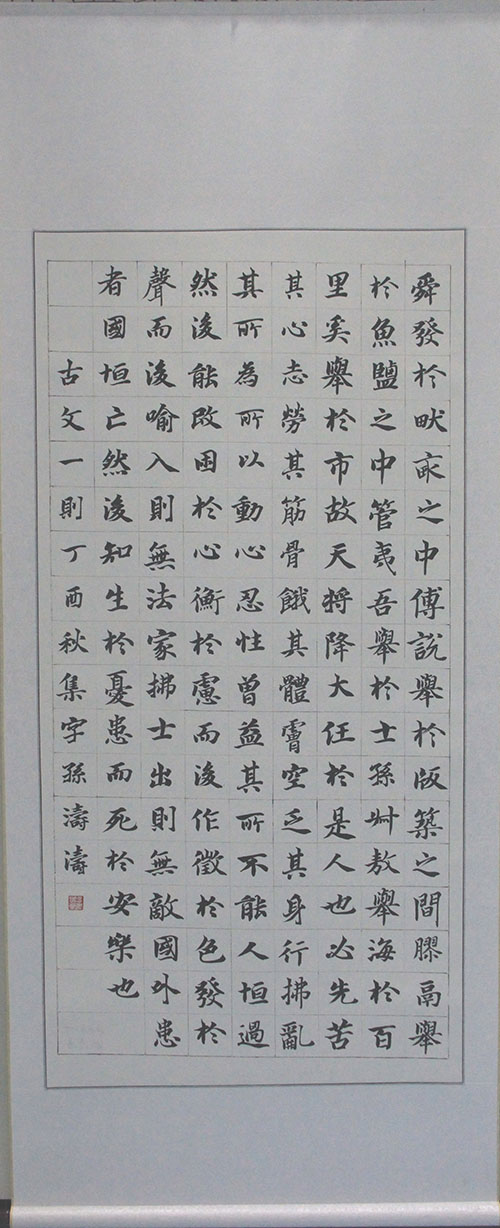 舜發於畎畝之中傅說舉於版築之間膠鬲舉
於魚鹽之中管夷吾舉於士孫叔敖舉海於百
里奚舉於市故天將降大任於是人也必先苦
其心志勞其筋骨餓其體膚空乏其身行拂亂
其所為所以動心忍性曾益其所不能人恒過
然後能改困於心衡於慮而後作徵於色發於
聲而後喻入則無法家拂士出則無敵國外患
者國恒亡然後知生於憂患而死於安樂也
古文一則丁酉秋集字孫濤濤